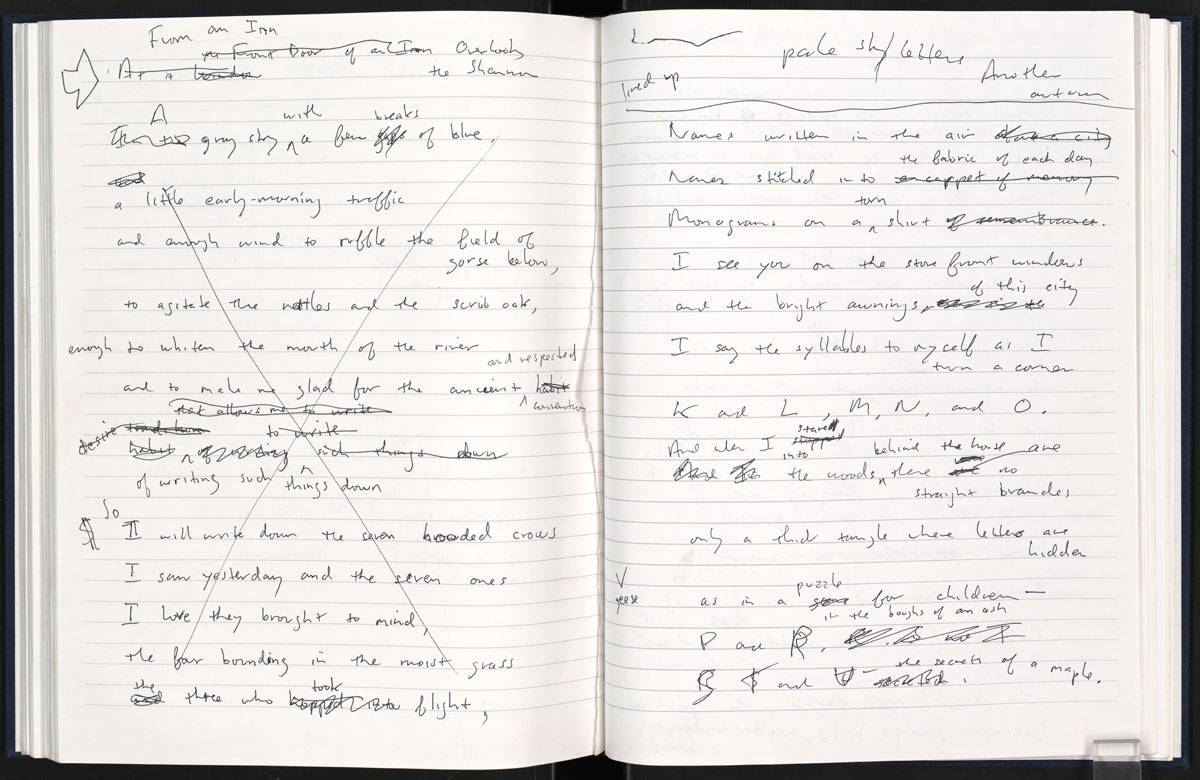 From an Inn
Front Door of an Inn Overlooking
At a window
the Shannon
A with breaks
In the gray sky a few of blue,
a little early-morning traffic
and enough wind to ruffle the field of
gorse below,
to agitate the nettles and the scrub oak,
enough to whiten the mouth of the river
and respected
and to make me glad for the ancient habit
convention
that allows me to write
desire tradition to write
habit of writing such things down
of writing such things down
So
I will write down the seven hooded crows
I saw yesterday and the seven ones
I love they brought to mind,
the four bounding in the moist grass
the took
and three who hopped into flight;
2
pale sky letters
lined up
Another
autumn
Names written in the air
the fabric of each day
Names stitched into a carpet of memory
torn
Monograms on a shirt of remembrance.
I see you on the store front windows
of this city
and the bright awnings
I say the syllables to myself as I
turn a corner
K and L, M, N, and O.
stared
And when I stepped behind the house are
into
the woods, there no
straight branches
only a thick tangle where letters are
hidden
V
geese
puzzle
as in a for children—
in the boughs of an ash
P and R.
the secrets of a maple.
S and